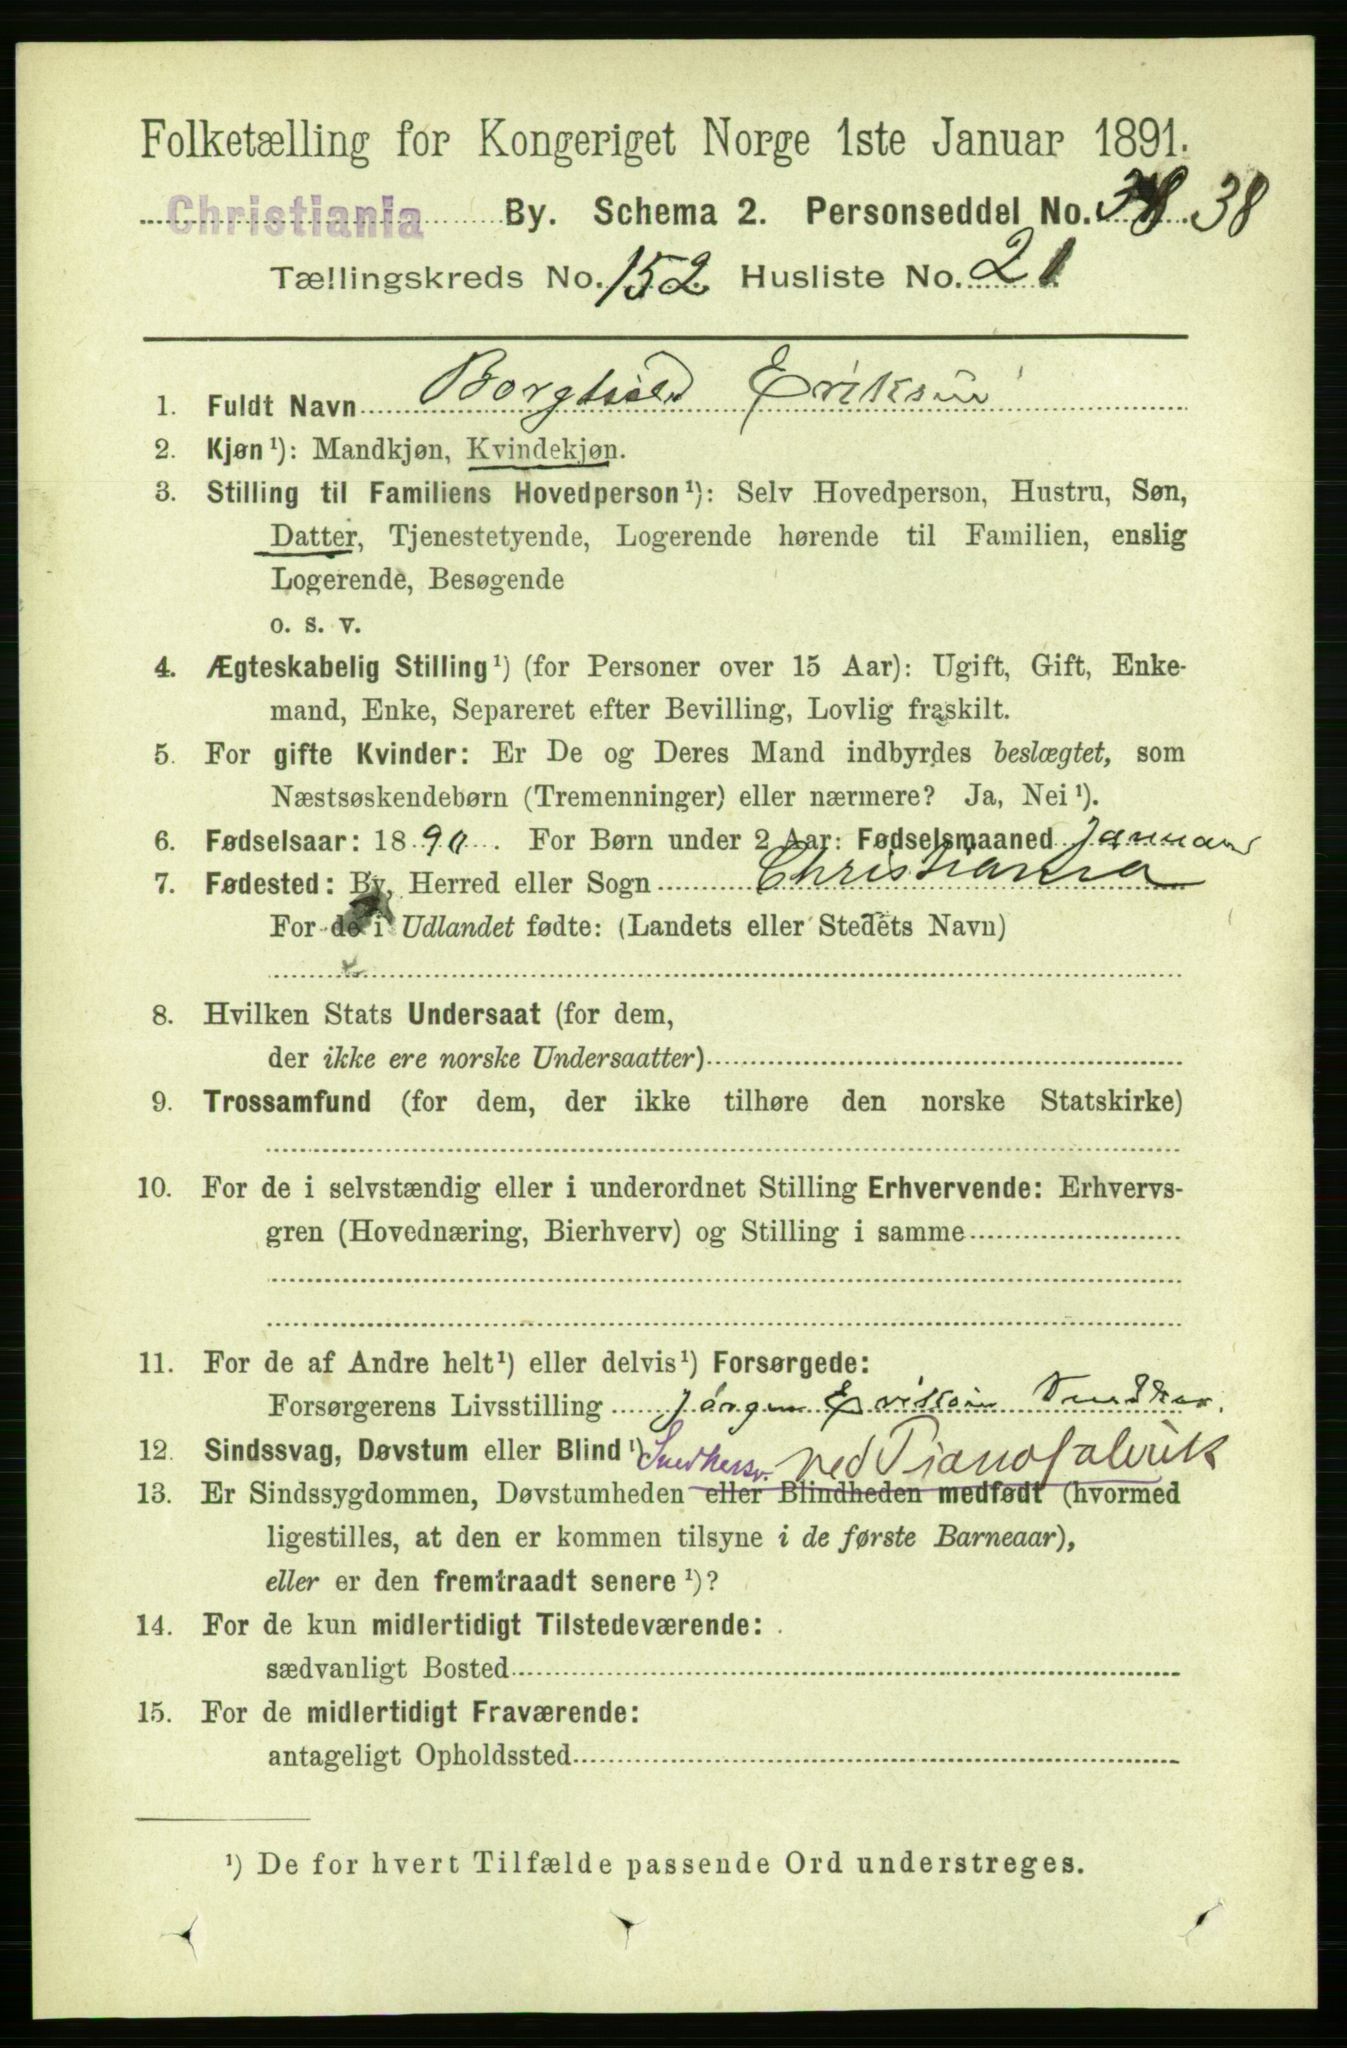 Folketælling for Kongeriget Norge 1ste Januar 1891.
Christiania By. Schema 2. Personseddel No. 38 38
Tællingskreds No. 152. Husliste No. 21
1. Fuldt Navn Borghild Eriksen
2. Kjøn¹): Mandkjøn, Kvindekjøn.
3. Stilling til Familiens Hovedperson¹): Selv Hovedperson, Hustru, Søn,
Datter, Tjenestetyende, Logerende hørende til Familien, enslig
Logerende, Besøgende
o. s. v.
4. Ægteskabelig Stilling¹) (for Personer over 15 Aar): Ugift, Gift, Enke-
mand, Enke, Separeret efter Bevilling, Lovlig fraskilt.
5. For gifte Kvinder: Er De og Deres Mand indbyrdes beslægtet, som
Næstsøskendebørn (Tremenninger) eller nærmere? Ja, Nei¹).
6. Fødselsaar: 1890. For Børn under 2 Aar: Fødselsmaaned Januar
7. Fødested: By, Herred eller Sogn Christiania
For de i Udlandet fødte: (Landets eller Stedets Navn)
8. Hvilken Stats Undersaat (for dem,
der ikke ere norske Undersaatter)
9. Trossamfund (for dem, der ikke tilhøre den norske Statskirke)
10. For de i selvstændig eller i underordnet Stilling Erhvervende: Erhvervs-
gren (Hovednæring, Bierhverv) og Stilling i samme
11. For de af Andre helt¹) eller delvis¹) Forsørgede:
Forsørgerens Livsstilling Jörgen Eriksen Snedker.
12. Sindssvag, Døvstum eller Blind¹) Snedkersv. ved Pianofabrik
13. Er Sindssygdommen, Døvstumheden eller Blindheden medfødt (hvormed
ligestilles, at den er kommen tilsyne i de første Barneaar),
eller er den fremtraadt senere¹)?
14. For de kun midlertidigt Tilstedeværende:
sædvanligt Bosted
15. For de midlertidigt Fraværende:
antageligt Opholdssted
¹) De for hvert Tilfælde passende Ord understreges.